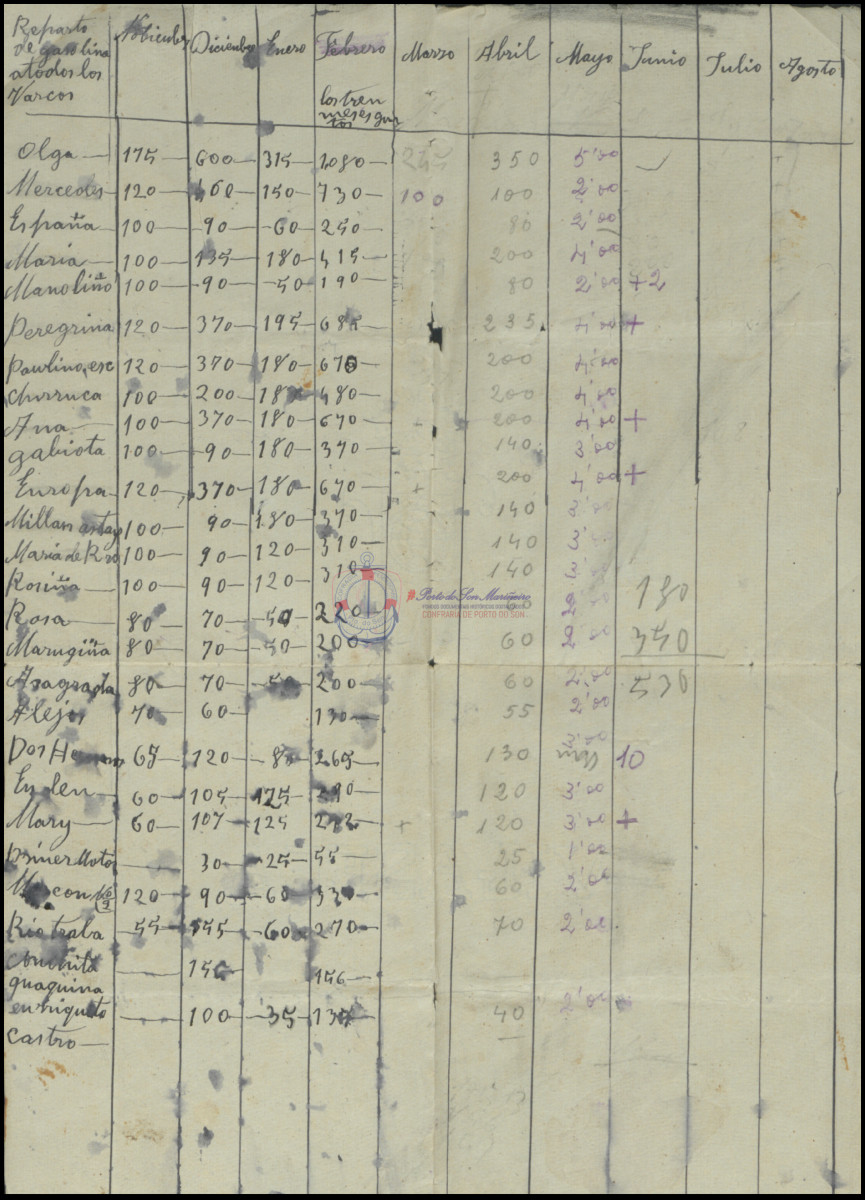 Reparto de gasolina a todos los Varcos
Nobiembre Diciembre Enero Febrero los tren meses guntos Marzo Abril Mayo Junio Julio Agosto
Olga 175 600 315 1080 350 5'00
Mercedes 120 460 150 730 100 100 2'00
España 100 90 60 250 80 2'00
Maria 100 135 180 415 200 4'00
Manoliño 100 90 50 190 80 2'00 +2
Peregrina 120 370 195 685 235 4'00 +
Paulino, esc 120 370 180 670 200 4'00
Churruca 100 200 180 480 200 4'00
Ana 100 370 180 670 200 4'00 +
gabiota 100 90 180 370 140 3'00
Europa 120 370 180 670 200 4'00 +
Millan astay 100 90 180 370 140
Maria de R 100 90 120 310 140
Rosiña 100 90 120 310 140
Rosa 80 70 50 220 180
Marugiña 80 70 50 200 60 2'00 350
Asagrada 80 70 50 200 60 2'00 530
Alejos 70 60 130 55 2'00
Dos 65 120 80 265 130 10
Eyden 60 105 125 290 120 3'00
Mary 60 107 125 292 120 3'00 +
Primer Moto 30 25 55 25 1'00
120 90 60 330 60 2'00
Rio traba 55 155 60 270 70 2'00
Conchita guaguina 156 156
enrriqueto castro 100 35 135 40 2'00
# Porto do Son Mariñeiro
FONDOS DOCUMENTAIS HISTÓRICOS DIXITALIZADOS
CONFRARÍA DE PORTO DO SON